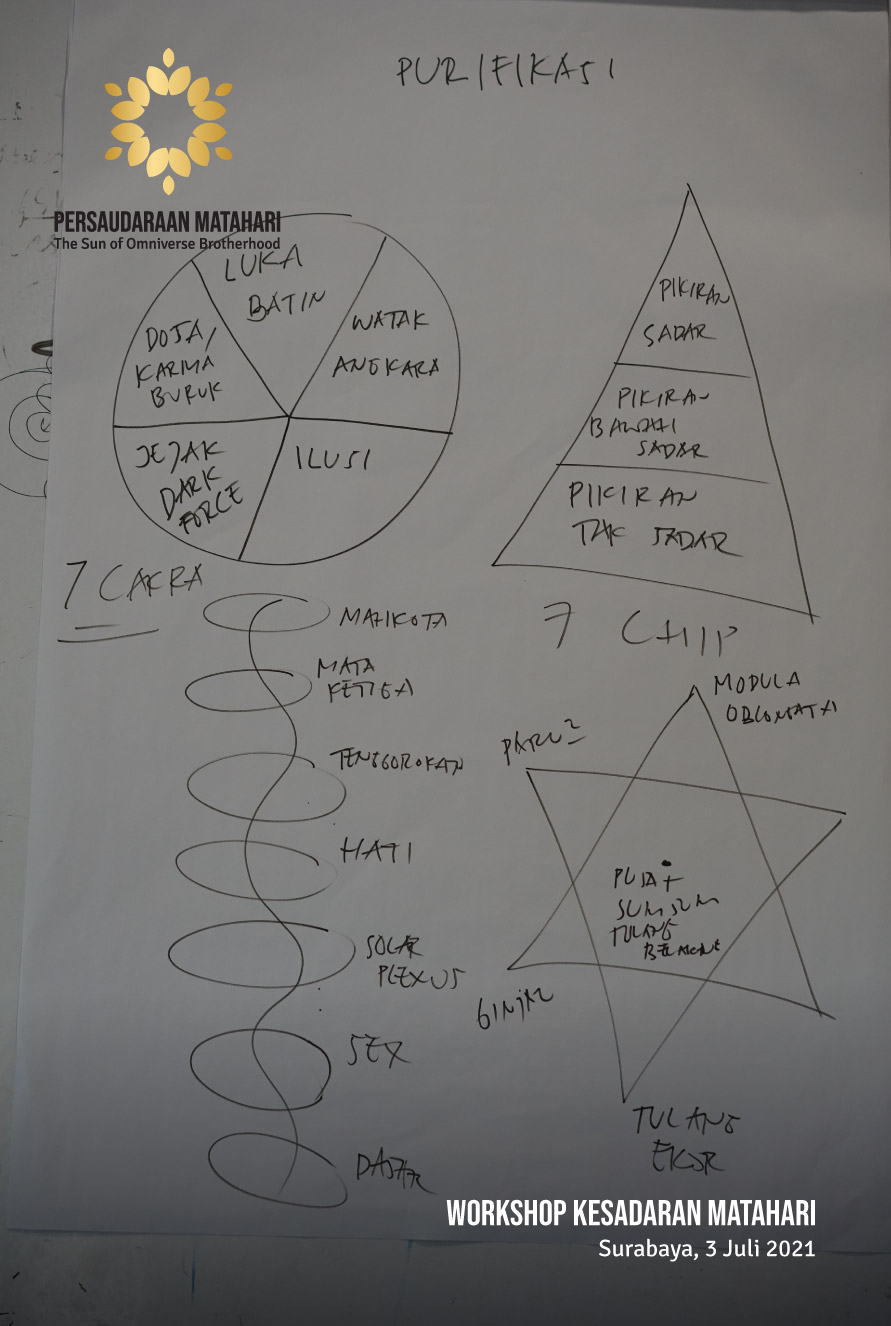 PURIFIKASI
PERSAUDARAAN MATAHARI
The Sun of Omniverse Brotherhood
LUKA
BATIN
WATAK
ANGKARA
DOSA/
KARMA
BURUK
JEJAK
DARK
FORCE
ILUSI
PIKIRAN
SADAR
PIKIRAN
BAWAH
SADAR
PIKIRAN
TAK SADAR
7 CAKRA
MAHKOTA
MATA
KETIGA
TENGGOROKAN
HATI
SOLAR
PLEXUS
SEX
DASAR
7 CHIP
MODULA
OBLONGATA
PARU2
PUSAT
SUMSUM
TULANG
GINJAL
TULANG
EKOR
WORKSHOP KESADARAN MATAHARI
Surabaya, 3 Juli 2021